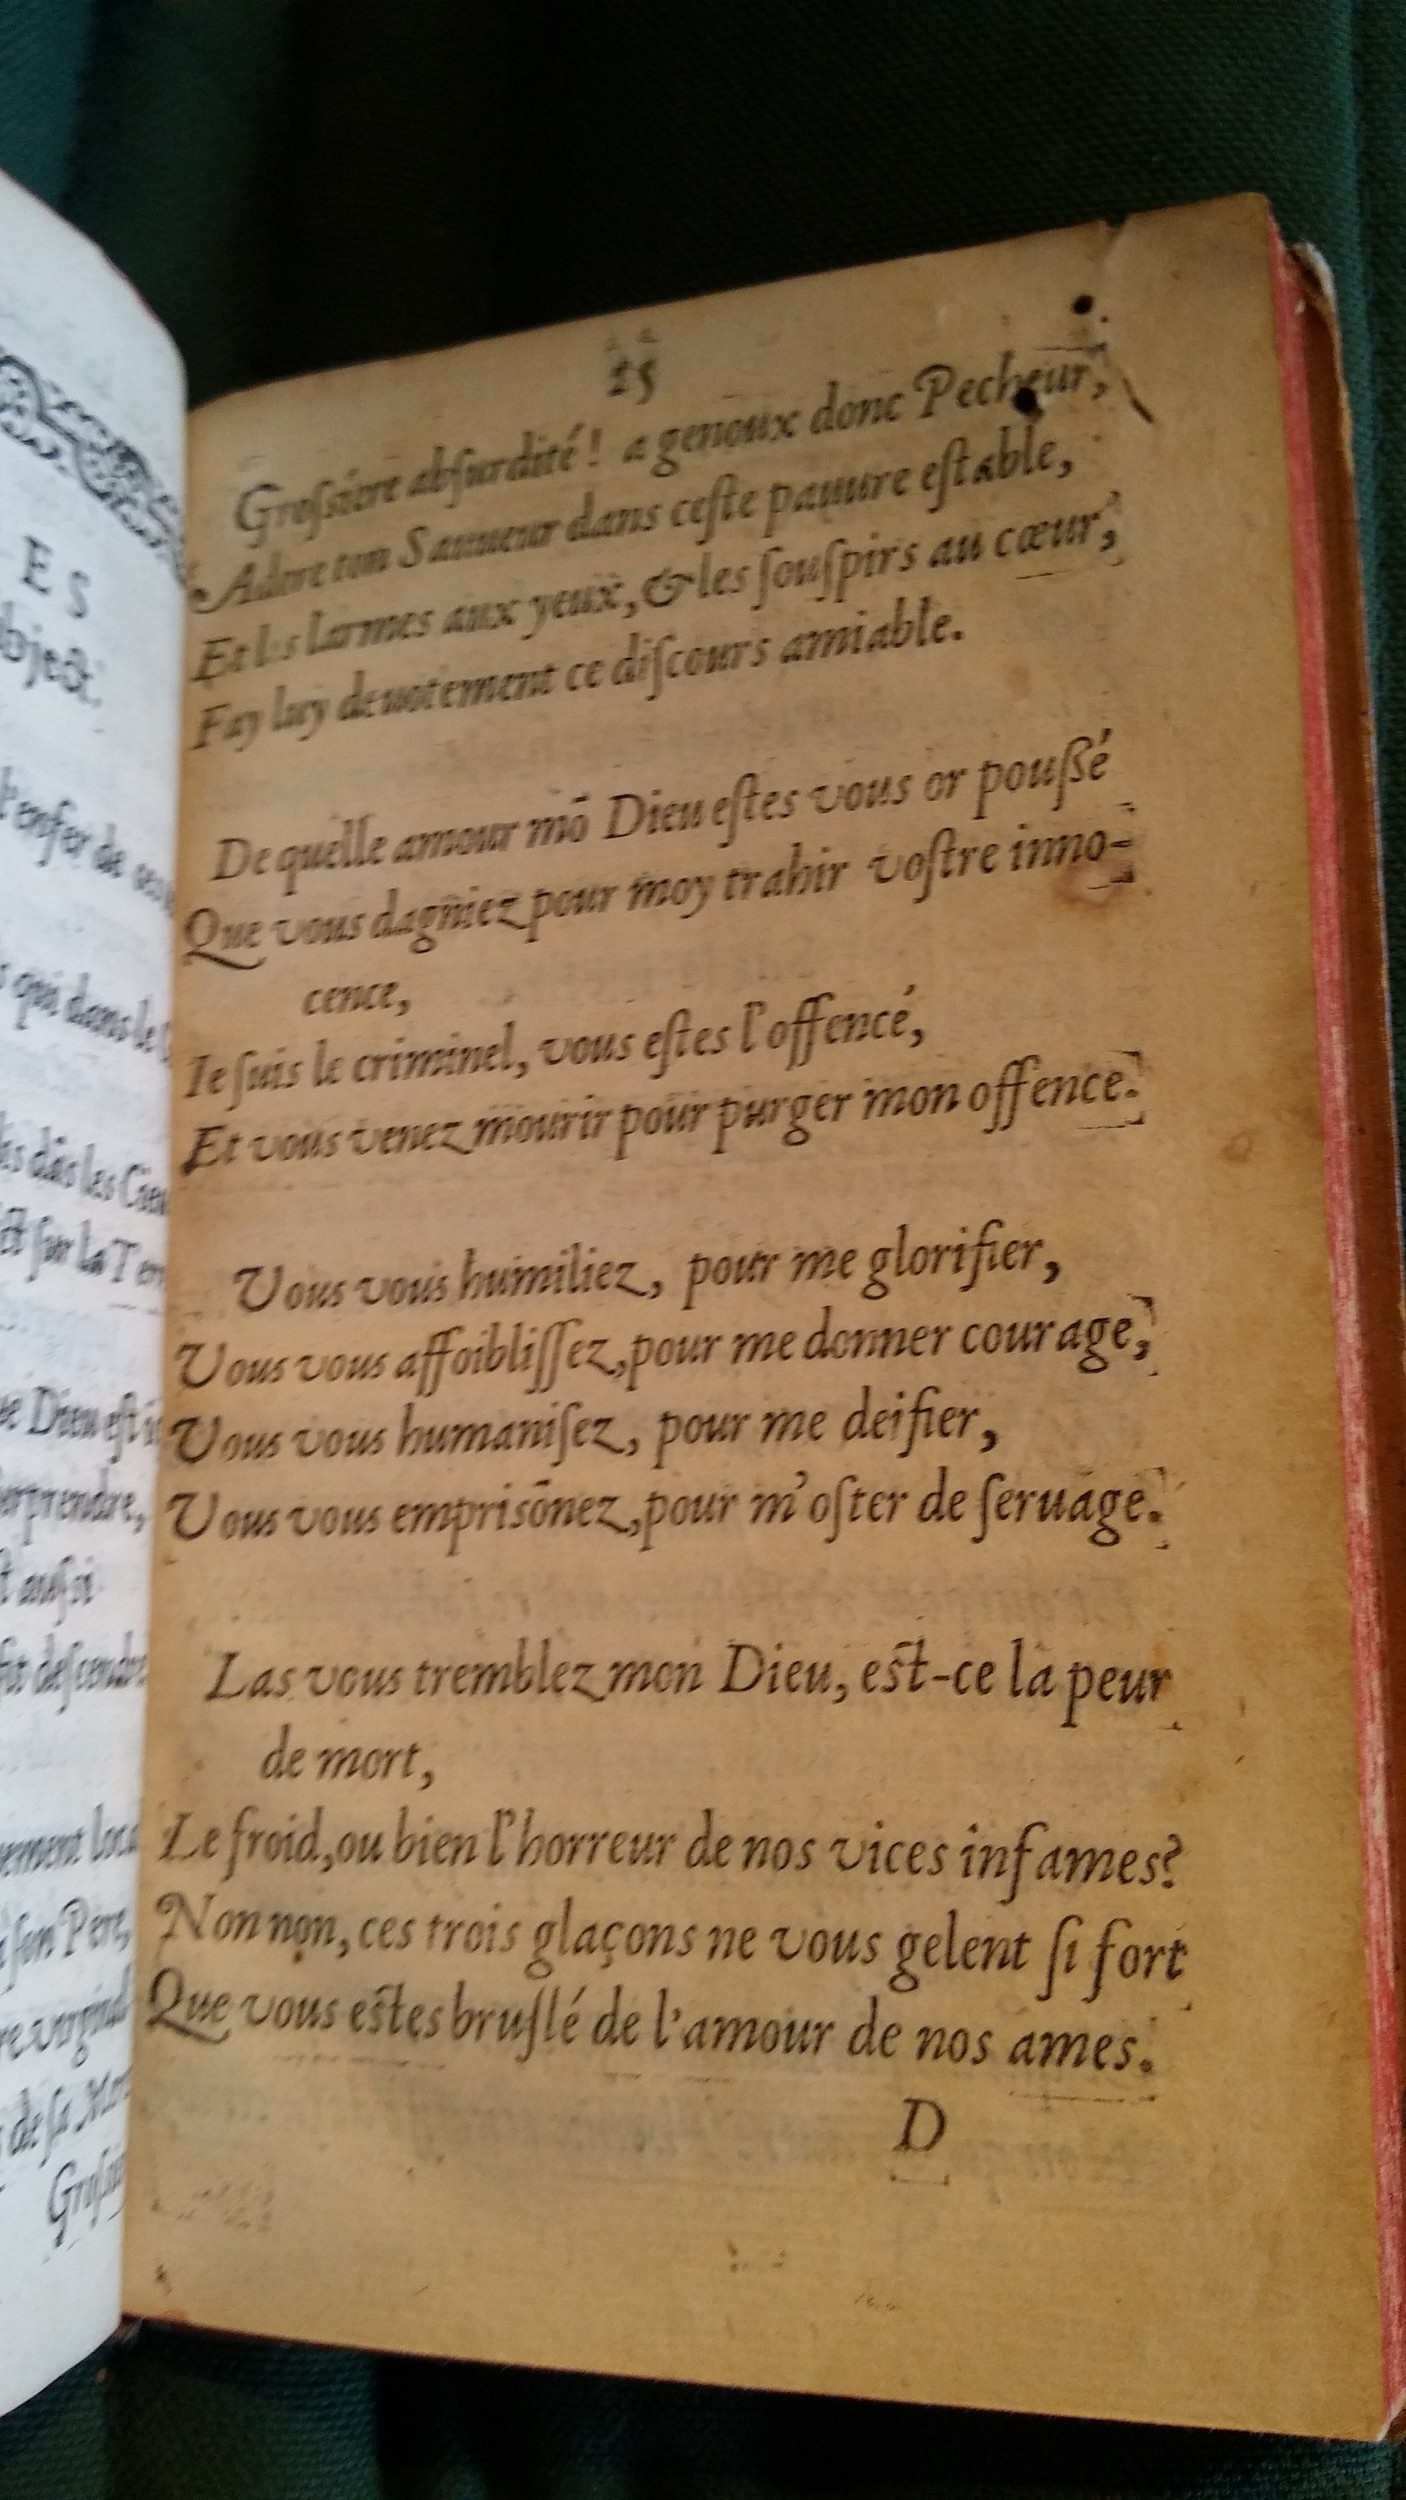 E S
bject.
l'enfer de ses
qui dans le
dãs les Cieu
ct ſur la Terr
Dieu eſt i
erprendre,
t auſsi
fit deſcendre
vement loca
ſon Pere,
re virginal
de ſa Mere
Groſsiere
25
Groſsiere abſurdité! a genoux donc Pecheur,
Adore ton Sauueur dans ceſte pauure eſtable,
Et les larmes aux yeux, & les ſouſpirs au cœur,
Fay luy deuotement ce diſcours amiable.
De quelle amour mõ Dieu eſtes vous or pouſſé
Que vous dagñiez pour moy trahir voſtre inno-
cence,
Ie ſuis le criminel, vous eſtes l'offencé,
Et vous venez mourir pour purger mon offence.
Vous vous humiliez, pour me glorifier,
Vous vous affoibliſſez, pour me donner courage,
Vous vous humaniſez, pour me deifier,
Vous vous emprisõnez, pour m'oſter de ſeruage.
Las vous tremblez mon Dieu, eſt-ce la peur
de mort,
Le froid, ou bien l'horreur de nos vices infames?
Non non, ces trois glaçons ne vous gelent ſi fort
Que vous eſtes bruſlé de l'amour de nos ames.
D